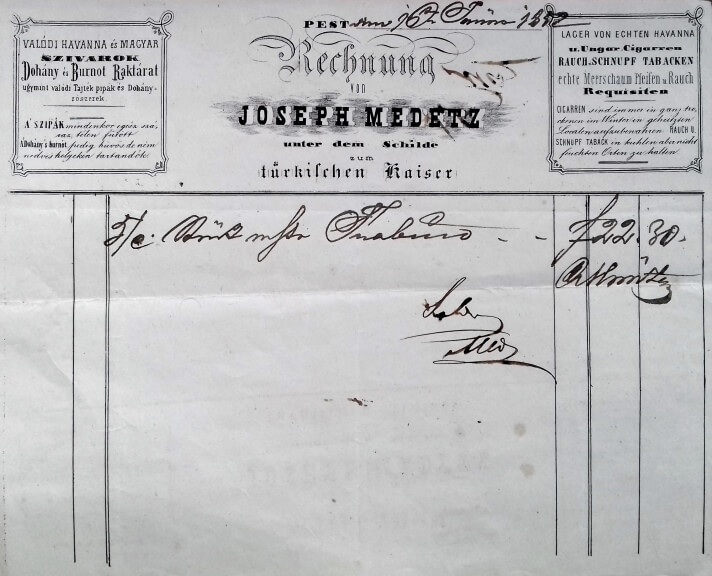 VALÓDI HAVANNA és MAGYAR
SZIVAROK
Dohány és Burnot Raktárat
ugymint valódi Tajték pipák és Dohány-
rőszerek.
A' SZIPÁK mindenkor egész szá-
raz, télen fűtött
A Dohány's burnót pedig hüvös de nem
nedves helyeken tartandók.
PEST den 16
Rechnung
VON
JOSEPH MEDETZ
unter dem Schilde
zum
türkischen Kaiser
LAGER VON ECHTEN HAVANNA
u. Ungar. Cigarren
RAUCH-SCHNUPF TABACKEN
echte Meerschaum Pfeifen u Rauch
Requisiten
CIGARREN sind immer in ganz tro-
ckenen im Winter in geheitzten
Localen aufzubewahren RAUCH U.
SCHNUPF TABACK in kühlen aber nicht
feuchten Orten zu halten.
5/c. Stück - - f 22. 30.